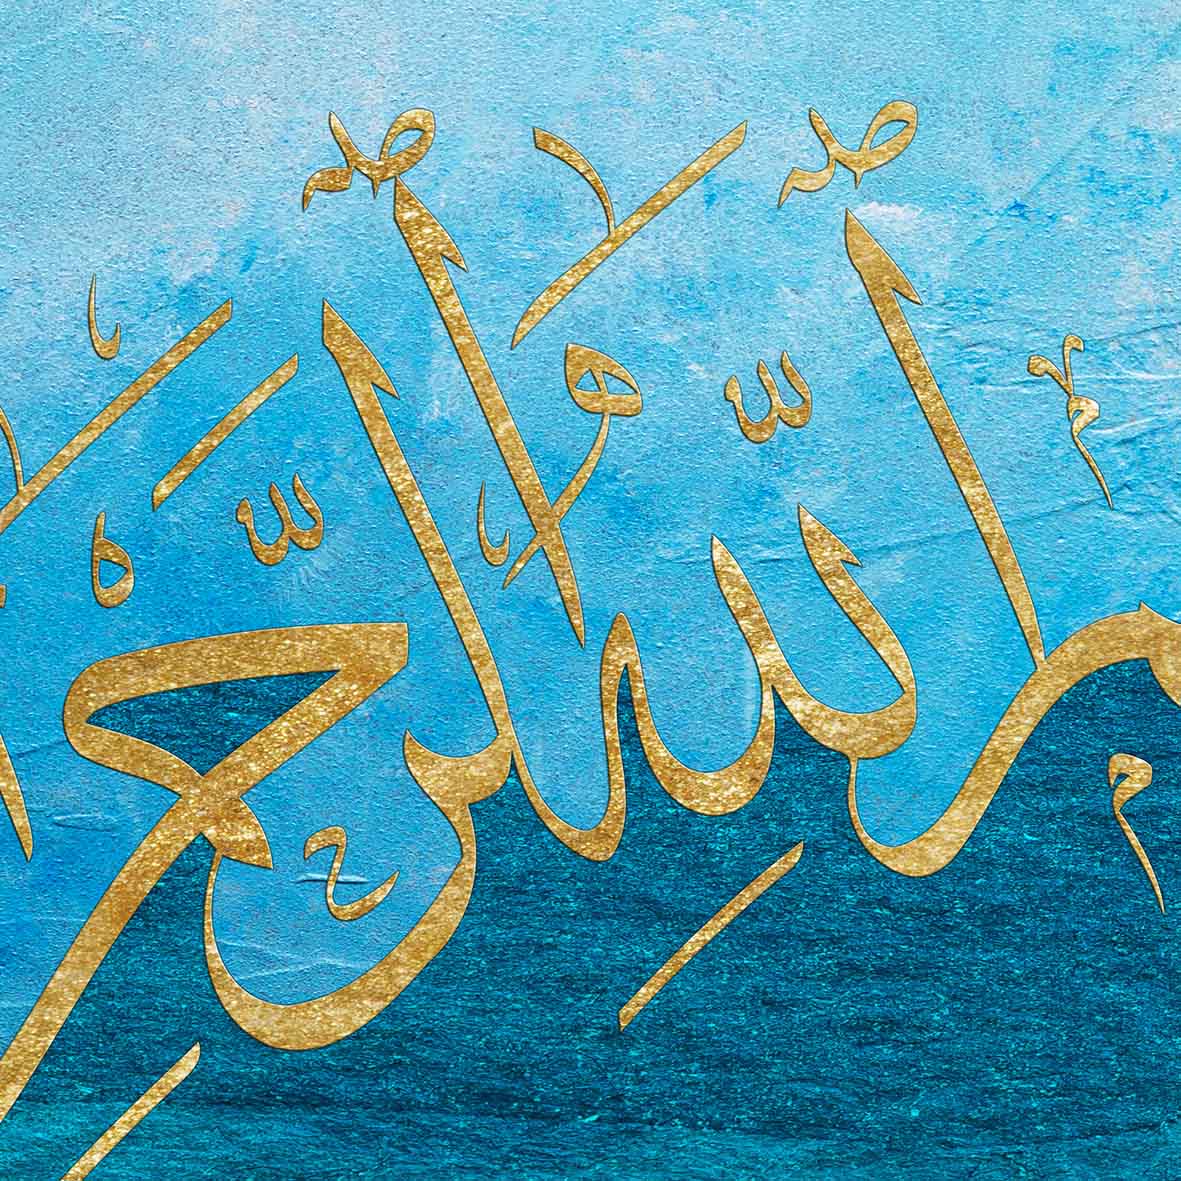 ـم ٱللَّهِ ٱلرَّحـ